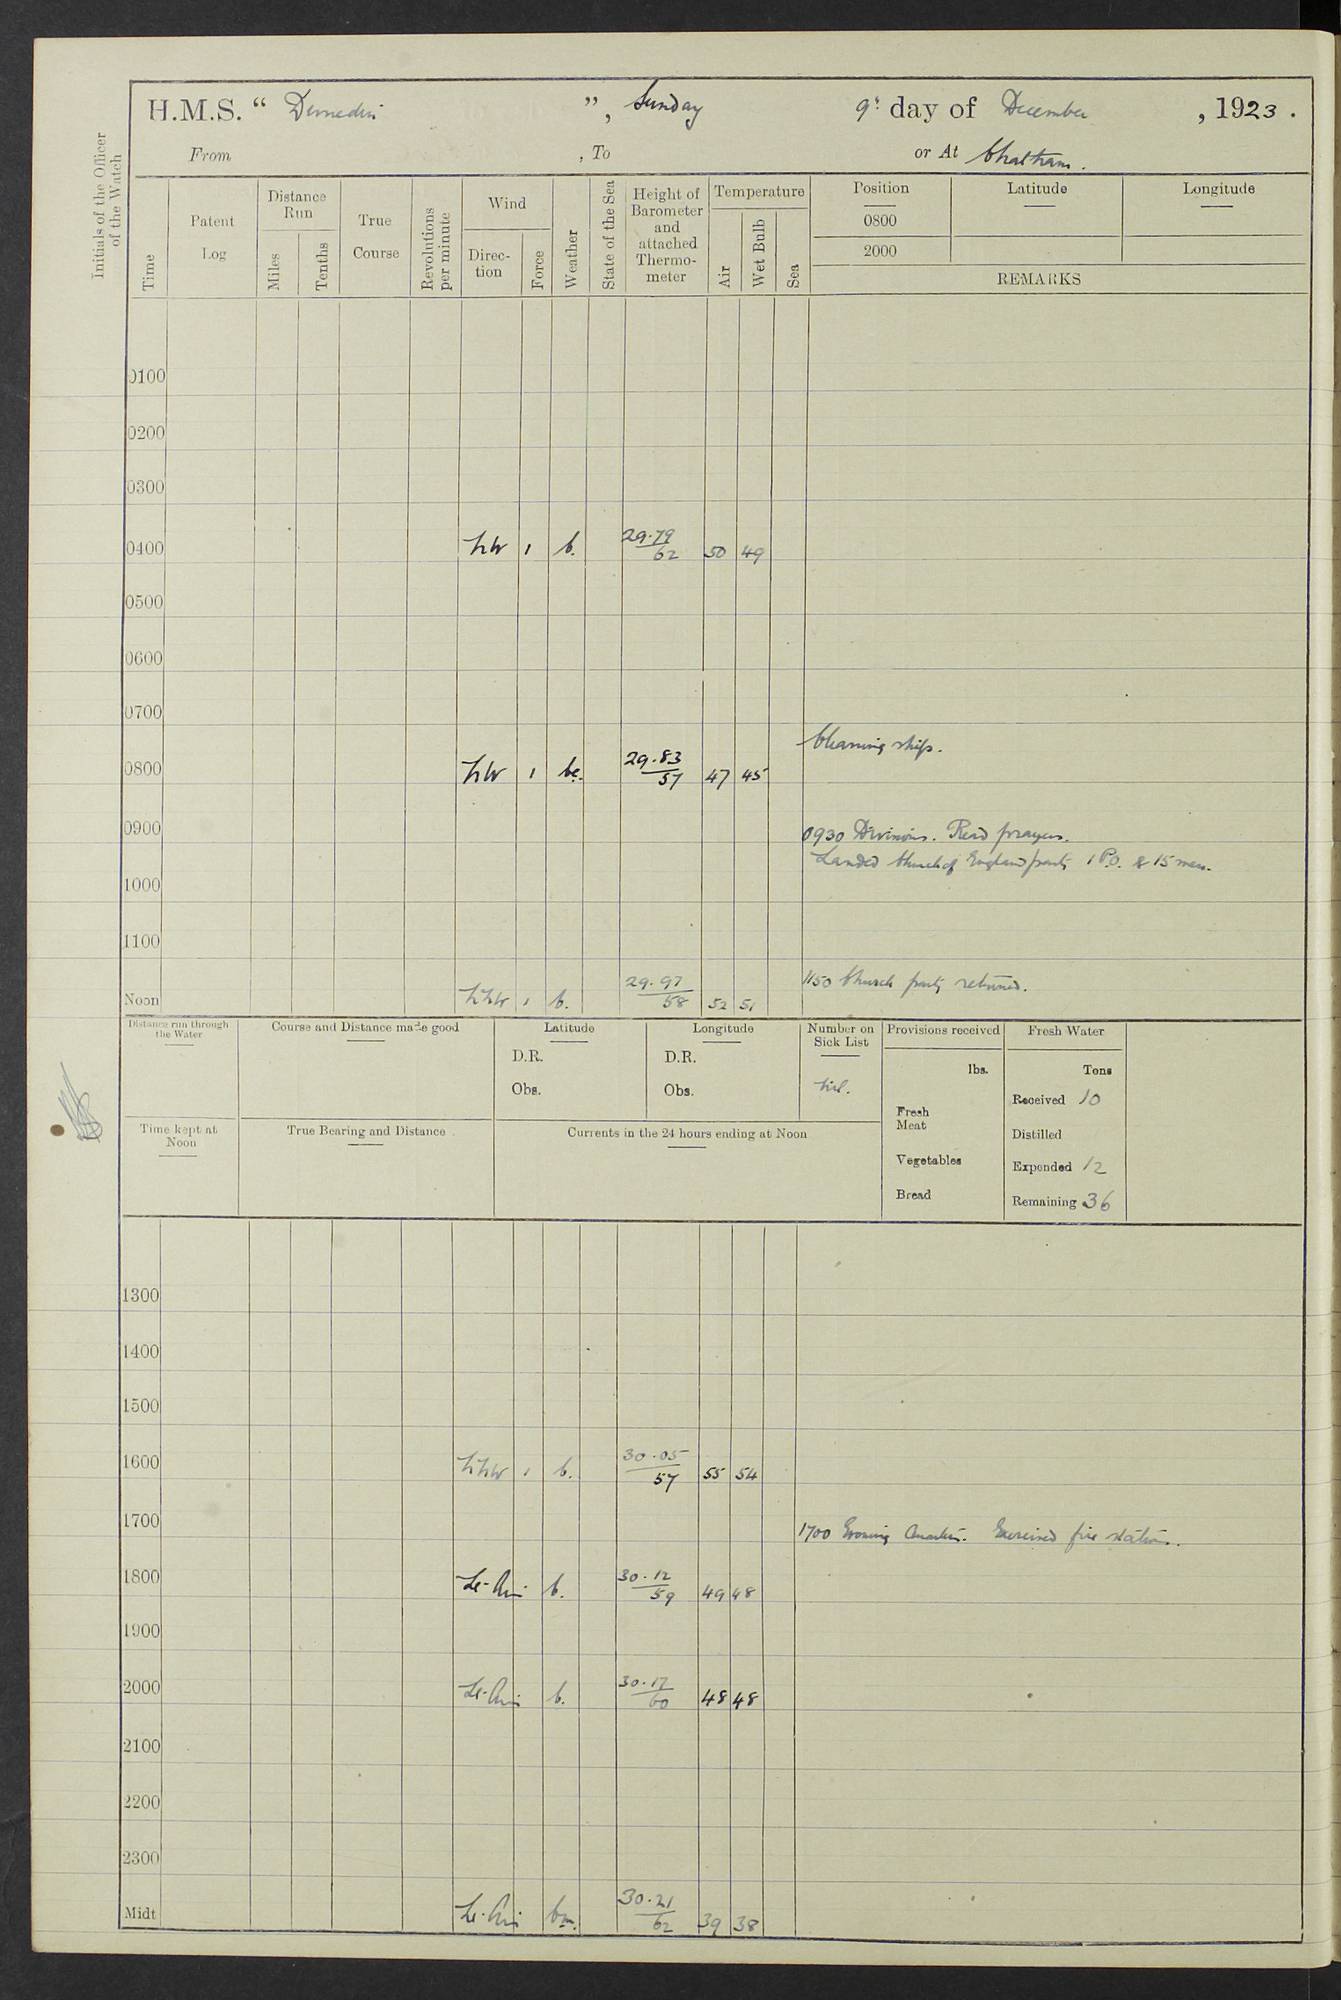 H.M.S. “ Dunedin ”, Sunday 9th day of December, 1923.
From , To or At Chatham.
Initials of the Officer of the Watch
Time
Patent Log
Distance Run
Miles
Tenths
True Course
Revolutions per minute
Wind
Direc-tion
Force
Weather
State of the Sea
Height of Barometer and attached Thermo-meter
Temperature
Air
Wet Bulb
Sea
Position Latitude Longitude
0800
2000
REMARKS
0100
0200
0300
0400 NW 1 b. 29.79 62 50 49
0500
0600
0700
Cleaning ship.
0800 NW 1 bc. 29.83 57 47 45
0900 0930 Divisions. Read prayers.
Landed Church of England party 1 P.O. & 15 men.
1000
1100
1150 Church party returned.
Noon NNW 1 b. 29.97 58 52 51
Distance run through the Water
Course and Distance made good
Latitude
D.R.
Obs.
Longitude
D.R.
Obs.
Number on Sick List
Nil.
Provisions received
lbs.
Fresh Meat
Vegetables
Bread
Fresh Water
Tons
Received 10
Distilled
Expended 12
Remaining 36
Time kept at Noon
True Bearing and Distance
Currents in the 24 hours ending at Noon
1300
1400
1500
1600 NNW 1 b. 30.05 57 55 54
1700 1700 Evening Quarters. Exercised fire stations.
1800 Lt. Airs b. 30.12 59 49 48
1900
2000 Lt. Airs b. 30.17 60 48 48
2100
2200
2300
Midt Lt. Airs bm. 30.21 62 39 38